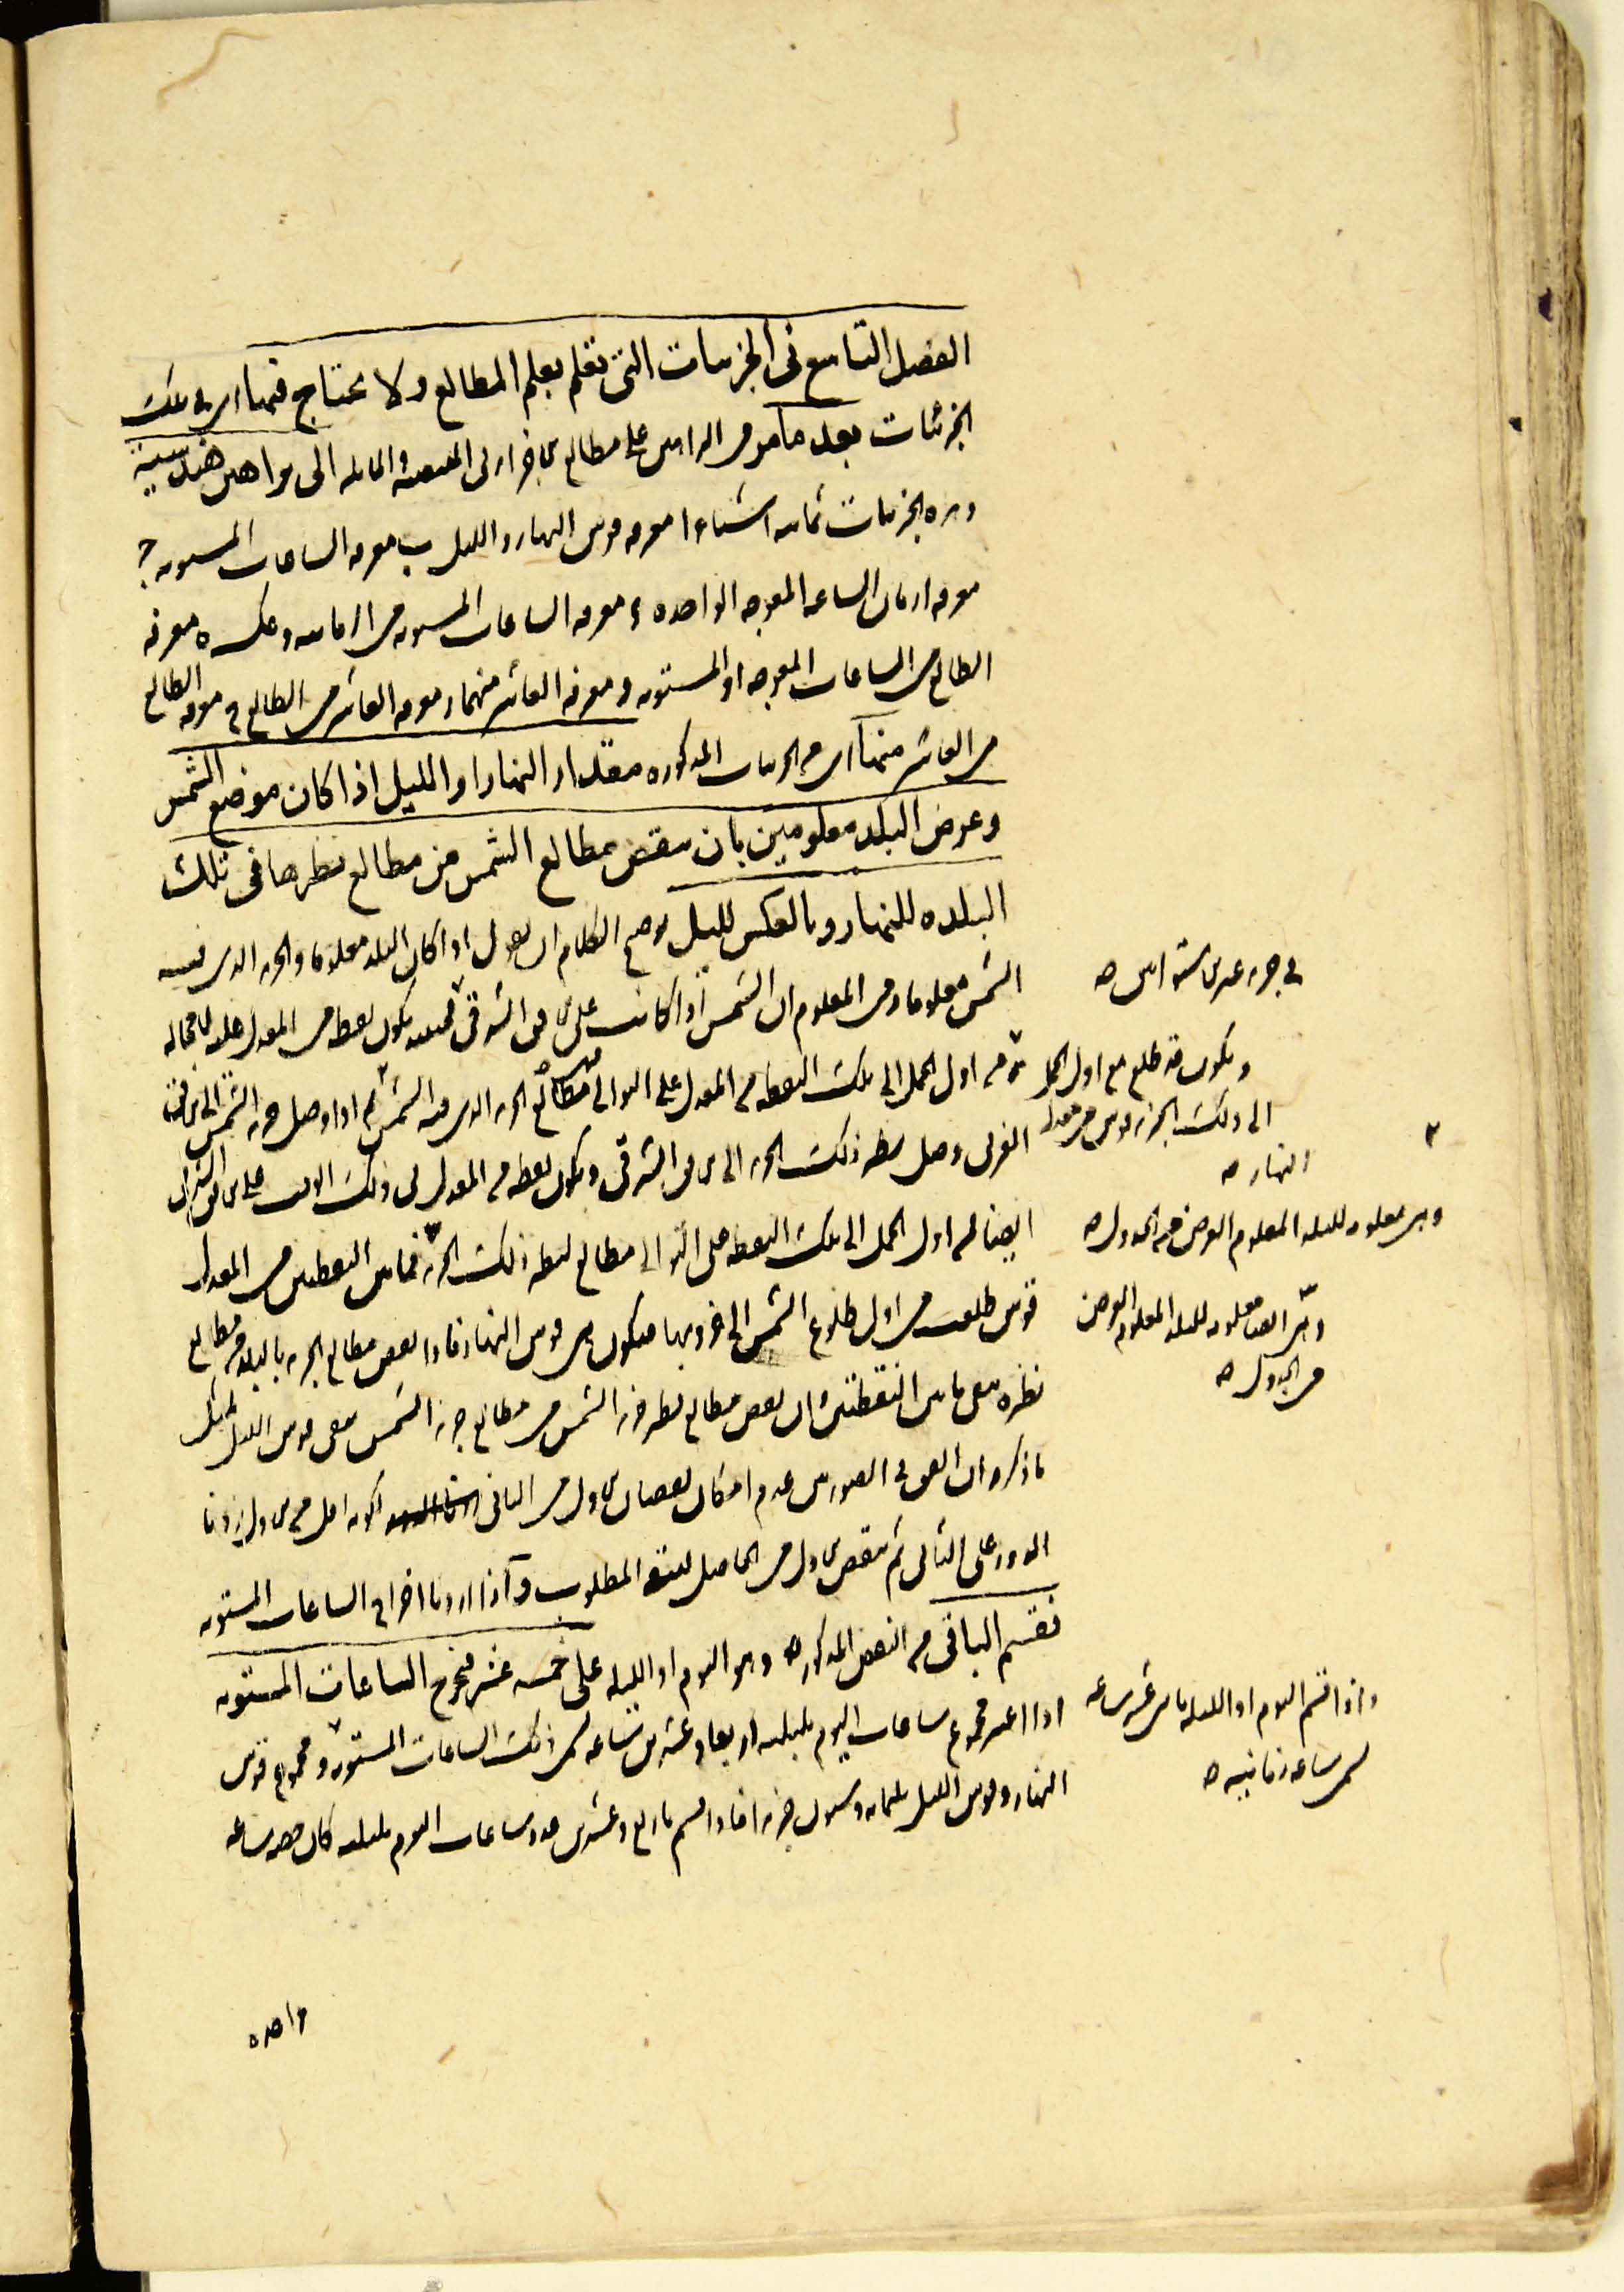 الفصل التاسع فى الجزئيات التى تعلم بعلم المطالع ولا يحتاج فيها اى فى تلك
الجزئيات بعد ما مر من البراهين على مطالع الى براهين هندسية
وهذه الجزئيات ثمانيه اشياء ا معرفه قوس النهار والليل ب معرفه الساعات المستويه ج
معرفه ازمان الساعه المعوجه الواحده ء معرفه الساعات المستويه من الزمانيه وعكسه ه معرفه
الطالع من الساعات المعوجه او المستويه و معرفه العاشر منهما ز معرفه العاشر من الطالع ح معرفه الطالع
من العاشر منها اى من الجزئيات المذكوره مقدار النهار او الليل اذا كان موضع الشمس
وعرض البلد معلومين بان ينقص مطالع الشمس من مطالع نظيرها فى تلك
البلده للنهار وبالعكس لليل توضيح الكلام ان نقول اذا كان البلد معلوما والجزء الذى فيه
الشمس معلوما ومن المعلوم ان الشمس اذا كانت على الافق الشرقى فحينئذ يكون نقطه من المعدل عليه لا محاله
فمن اول الحمل الى تلك النقطه من المعدل على التوالى مطالع الجزء الذى فيه الشمس ثم اذا وصل جزء الشمس الى الافق
الغربى وصل نظير ذلك الجزء الى الافق الشرقى ويكون نقطه من المعدل فى ذلك الوقت على الافق الشرقى
ايضا فمن اول الحمل الى تلك النقطه على التوالى مطالع نظير ذلك الجزء فما بين النقطتين من المعدل
قوس طلعت من اول طلوع الشمس الى غروبها فيكون هى قوس النهار فاذا نقص مطالع الجزء بالبلد من مطالع
نظيره بقى ما بين النقطتين وان نقص مطالع نظير جزء الشمس من مطالع جزء الشمس بقى قوس الليل بمثل
ما ذكر وان اتفق فى الصورتين عدم امكان نقصان الاول من الثانى لكونه اقل من الاول زدنا
الدور على الثانى ثم ننقص الاول من الحاصل ليبقى المطلوب واذا اردنا اخراج الساعات المستويه
نقسم الباقى من النقص المذكور وهو اليوم او الليله على خمسه عشر فيخرج الساعات المستويه
اذا اعتبر مجموع ساعات اليوم بليلته اربعا وعشرين ساعه سمى ذلك الساعات المستويه ومجموع قوس
النهار وقوس الليل ثلثمايه وستون جزءا فاذا قسم باربع وعشرين عدد ساعات اليوم بليلته كان حصه ساعه
واحده
فى جزء عشرين
ويكون قد طلع مع اول الحمل
الى ذلك الجزء قوس من معدل
النهار صه
وهى معلومه للبلد المعلوم العرض من الجدول صه
وهى ايضا معلومه للبلد المعلوم العرض
من الجدول صه
واذا قسم اليوم او الليله باثنى عشر ساعه
سمى ساعه زمانيه صه